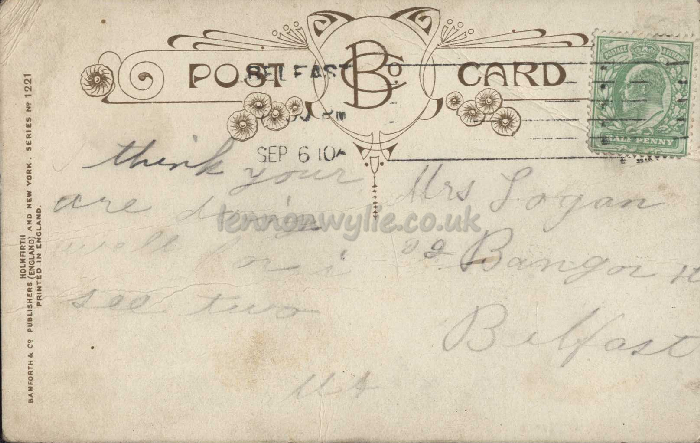 POST CARD
BCo
BELFAST
SEP 6 10
HALF PENNY
BAMFORTH & Co PUBLISHERS (ENGLAND) AND NEW YORK. SERIES No 1221
HOLMFIRTH
PRINTED IN ENGLAND.
I think your
are doing
well for i
see two
MA
Mrs Logan
Bangor
Belfast
lennonwylie.co.uk